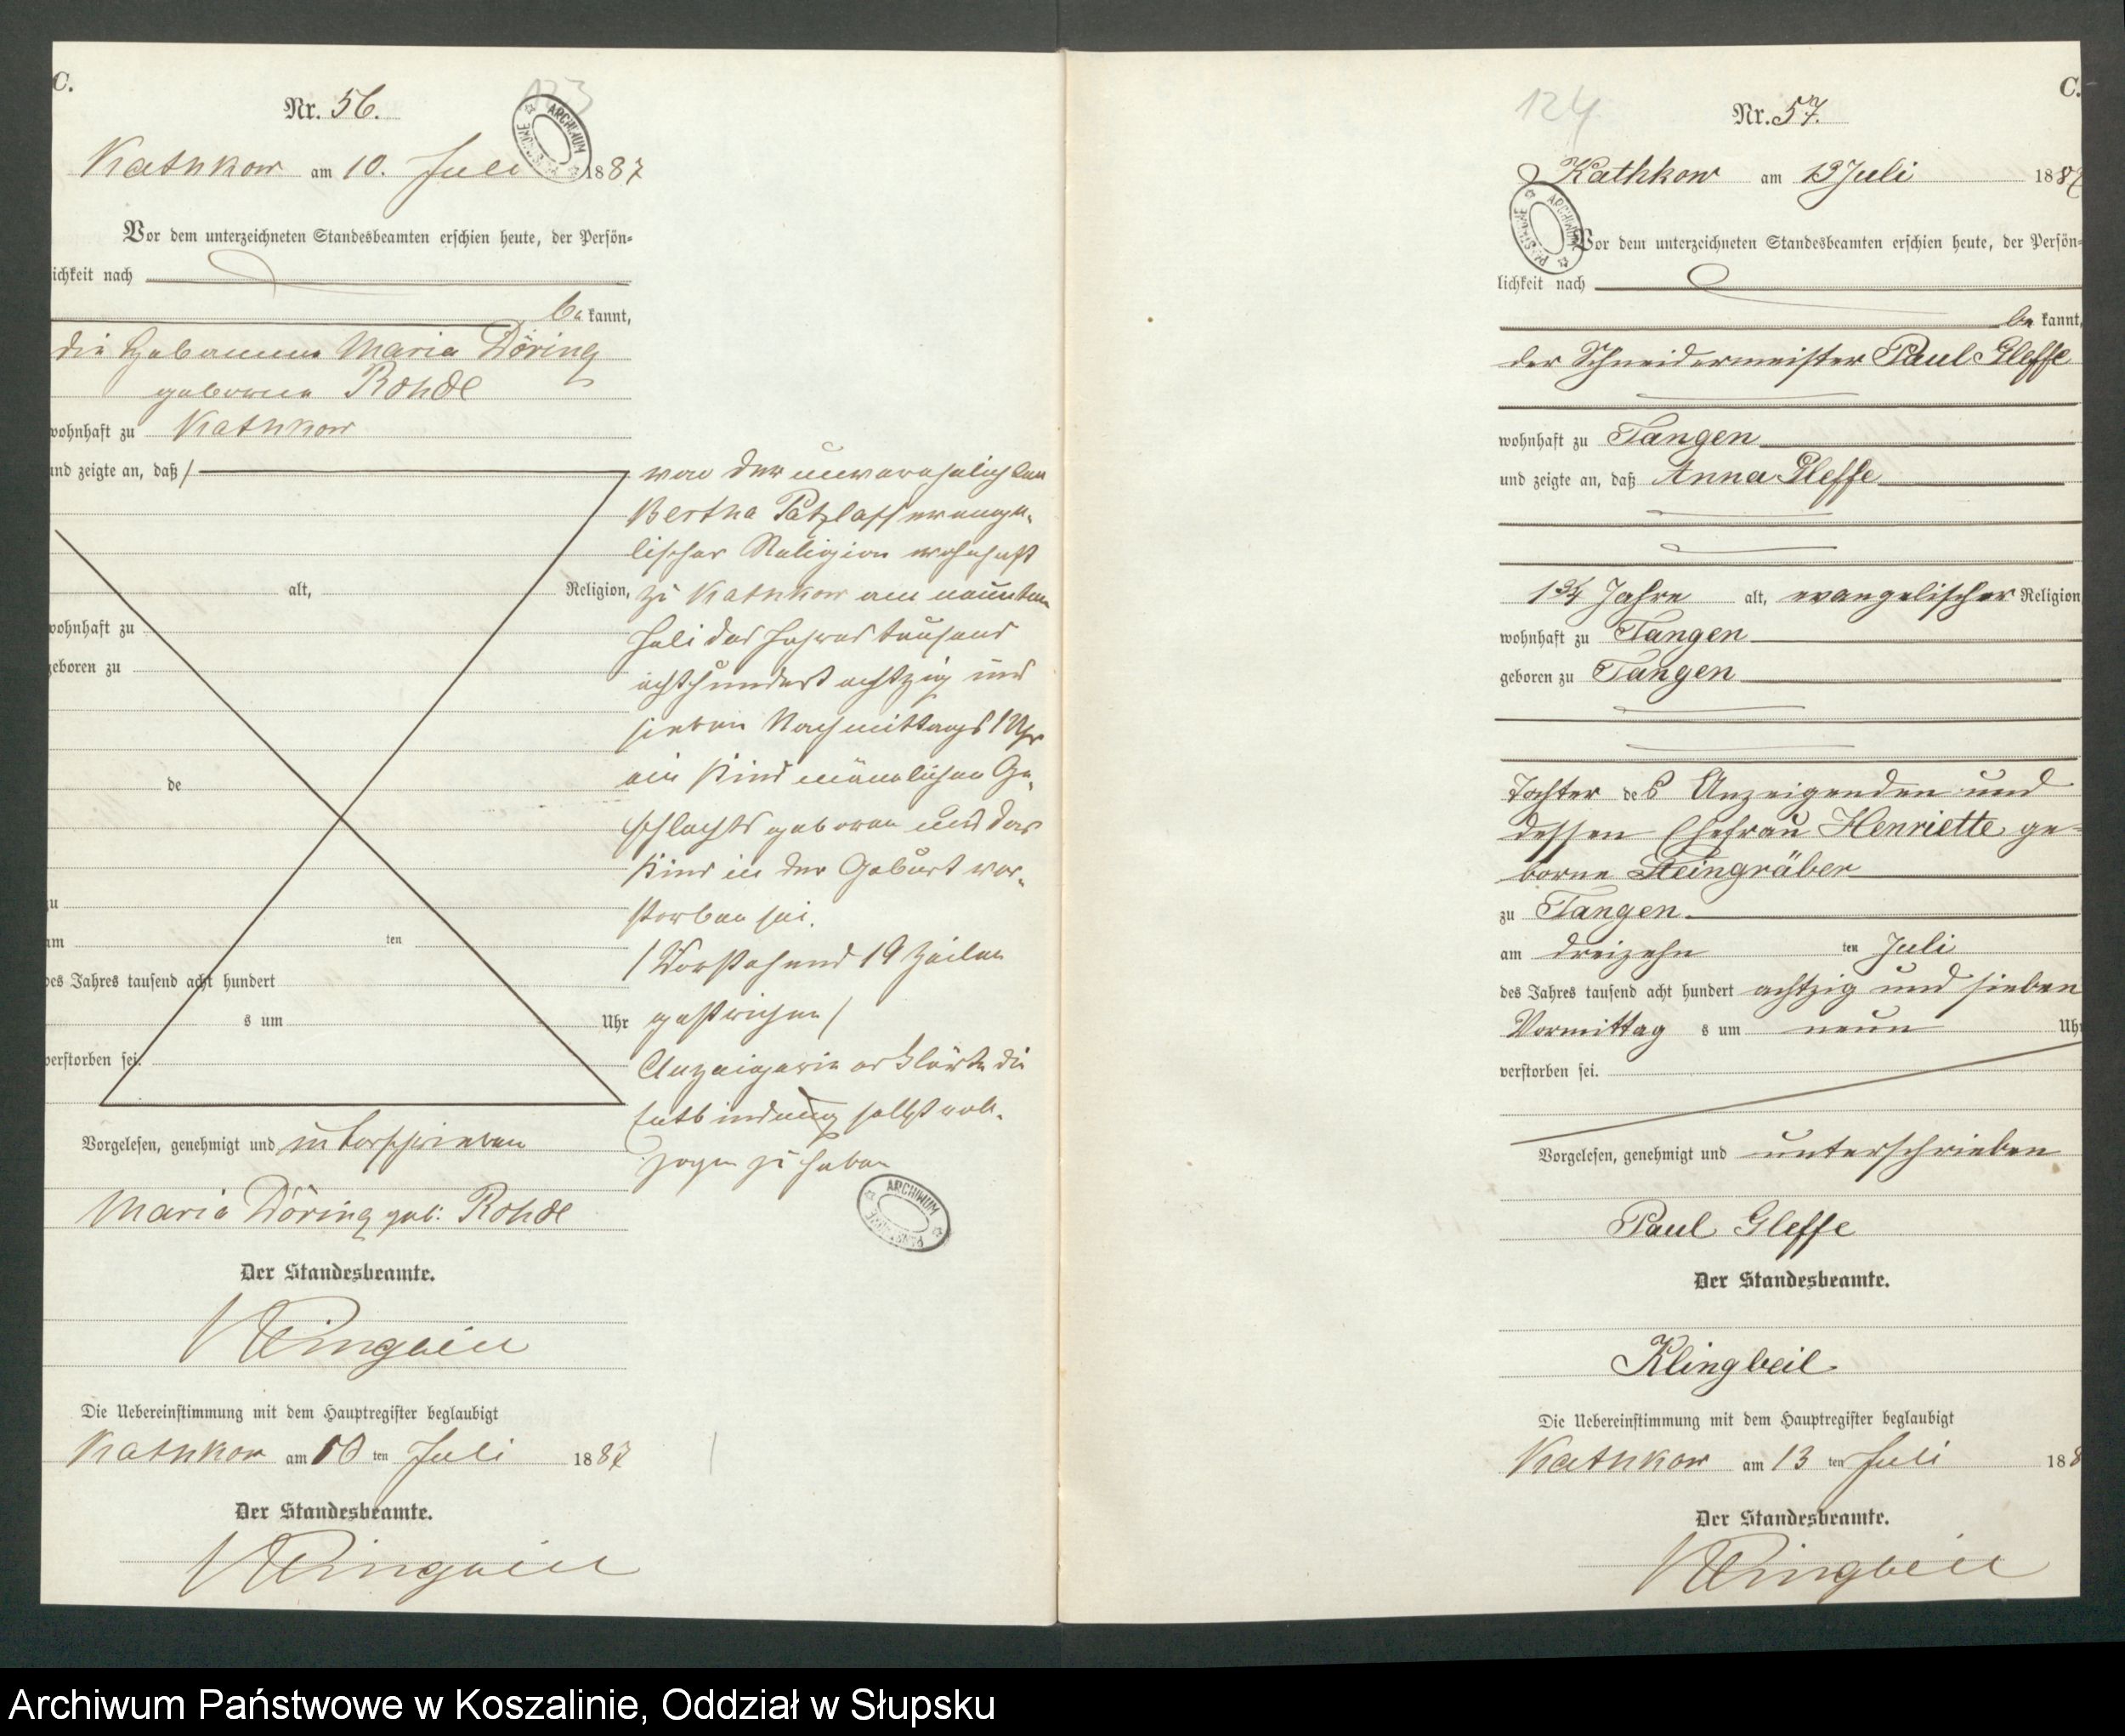 C.
Nr. 56.
Kathkow am 10. Juli 1887
Vor dem unterzeichneten Standesbeamten erschien heute, der Persön-
lichkeit nach
be kannt,
die Hebamme Maria Döring
geborene Rohde
wohnhaft zu Kathkow
und zeigte an, daß /
alt, Religion,
wohnhaft zu
geboren zu
de
zu
am ten
des Jahres tausend acht hundert
s um Uhr
verstorben sei.
von der unverehelichten
Bertha Patzlaff evange-
lischer Religion wohnhaft
zu Kathkow am neunten
Juli des Jahres tausend
achthundert achtzig und
sieben Nachmittags 1 Uhr
ein Kind männlichen Ge-
schlechts geboren und das
Kind in der Geburt ver-
storben sei.
/ Vorstehend 19 Zeilen
gestrichen /
Anzeigerin erklärte die
Entbindung selbst voll-
zogen zu haben
Vorgelesen, genehmigt und unterschrieben
Maria Döring geb. Rohde
Der Standesbeamte.
Klingbeil
Die Uebereinstimmung mit dem Hauptregister beglaubigt
Kathkow am 10 ten Juli 1887
Der Standesbeamte.
Klingbeil
C.
124
Nr. 57.
Kathkow am 13 Juli 1887
Vor dem unterzeichneten Standesbeamten erschien heute, der Persön-
lichkeit nach
be kannt,
der Schneidermeister Paul Gleffe
wohnhaft zu Tangen
und zeigte an, daß Anna Gleffe
1 3/4 Jahre alt, evangelischer Religion
wohnhaft zu Tangen
geboren zu Tangen
Tochter des Anzeigenden und
dessen Ehefrau Henriette ge-
borne Steingräber
zu Tangen
am dreizehn ten Juli
des Jahres tausend acht hundert achtzig und sieben
Vormittag s um neun Uhr
verstorben sei.
Vorgelesen, genehmigt und unterschrieben
Paul Gleffe
Der Standesbeamte.
Klingbeil
Die Uebereinstimmung mit dem Hauptregister beglaubigt
Kathkow am 13 ten Juli 188
Der Standesbeamte.
Klingbeil
Archiwum Państwowe w Koszalinie, Oddział w Słupsku